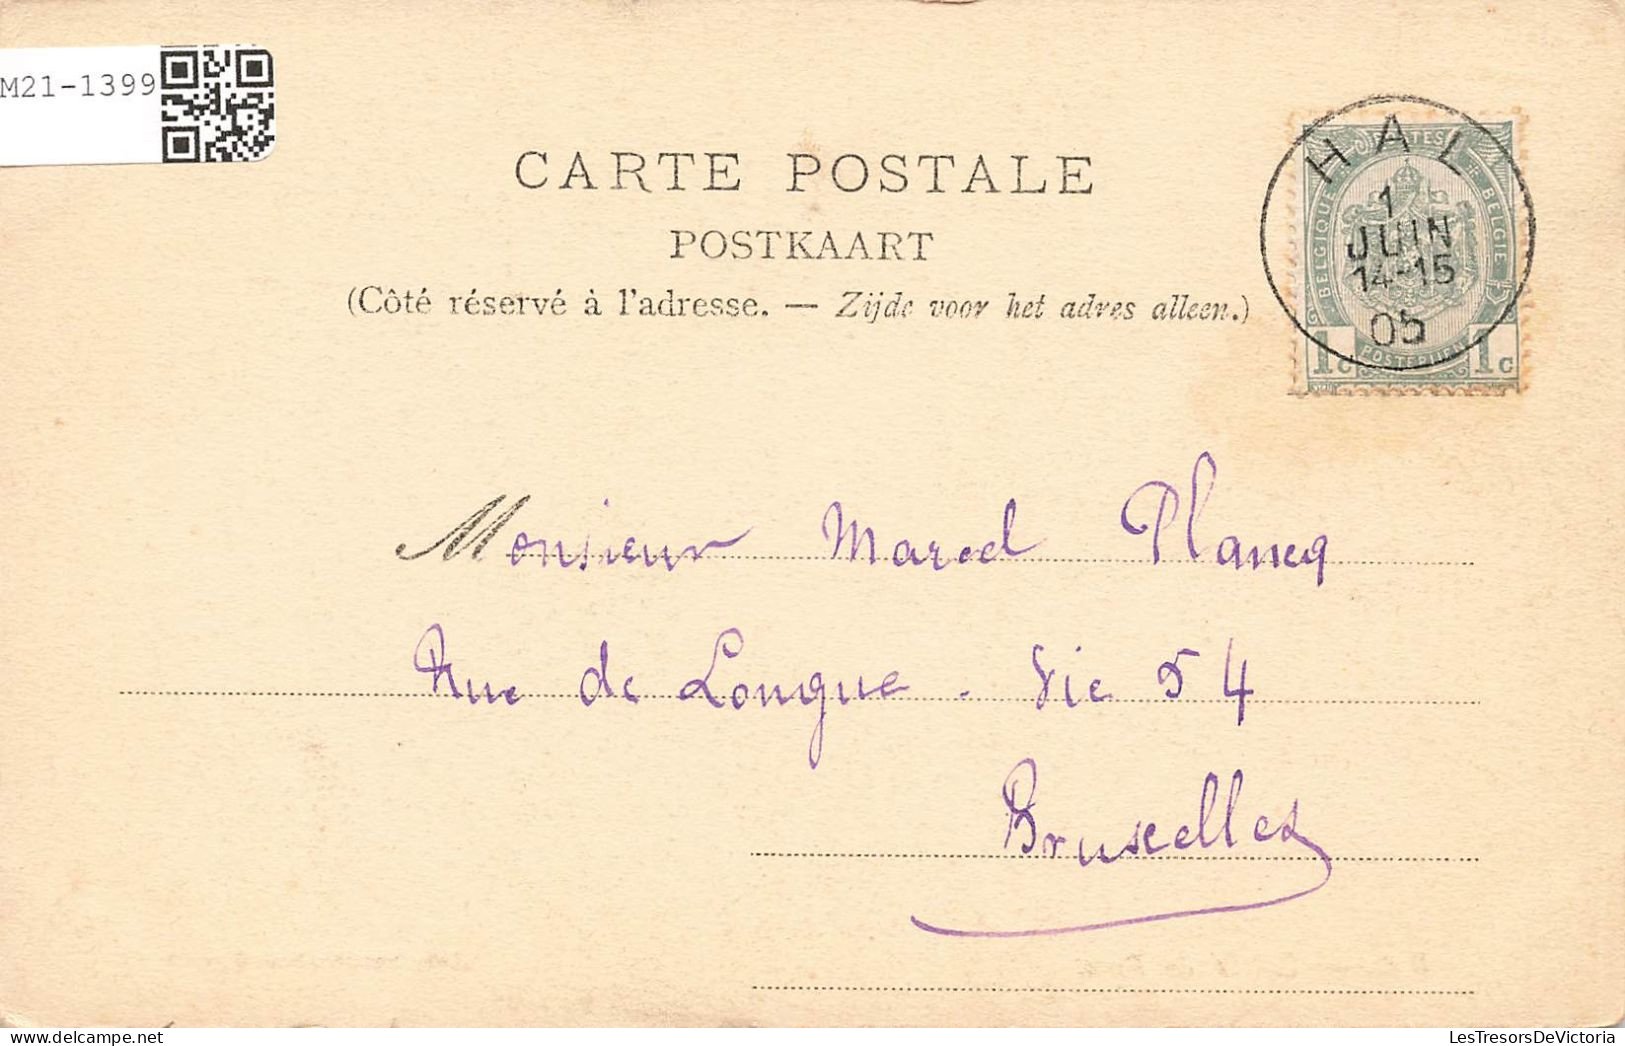 M21-1399
CARTE POSTALE
POSTKAART
(Côté réservé à l'adresse. — Zijde voor het adres alleen.)
HAL
1
JUIN
14-15
05
BELGIQUE
BELGIE
POSTERIJEN
1c 1c
Monsieur Marcel Plancq
Rue de Longue-Vie 54
Bruxelles
LesTresorsDeVictoria